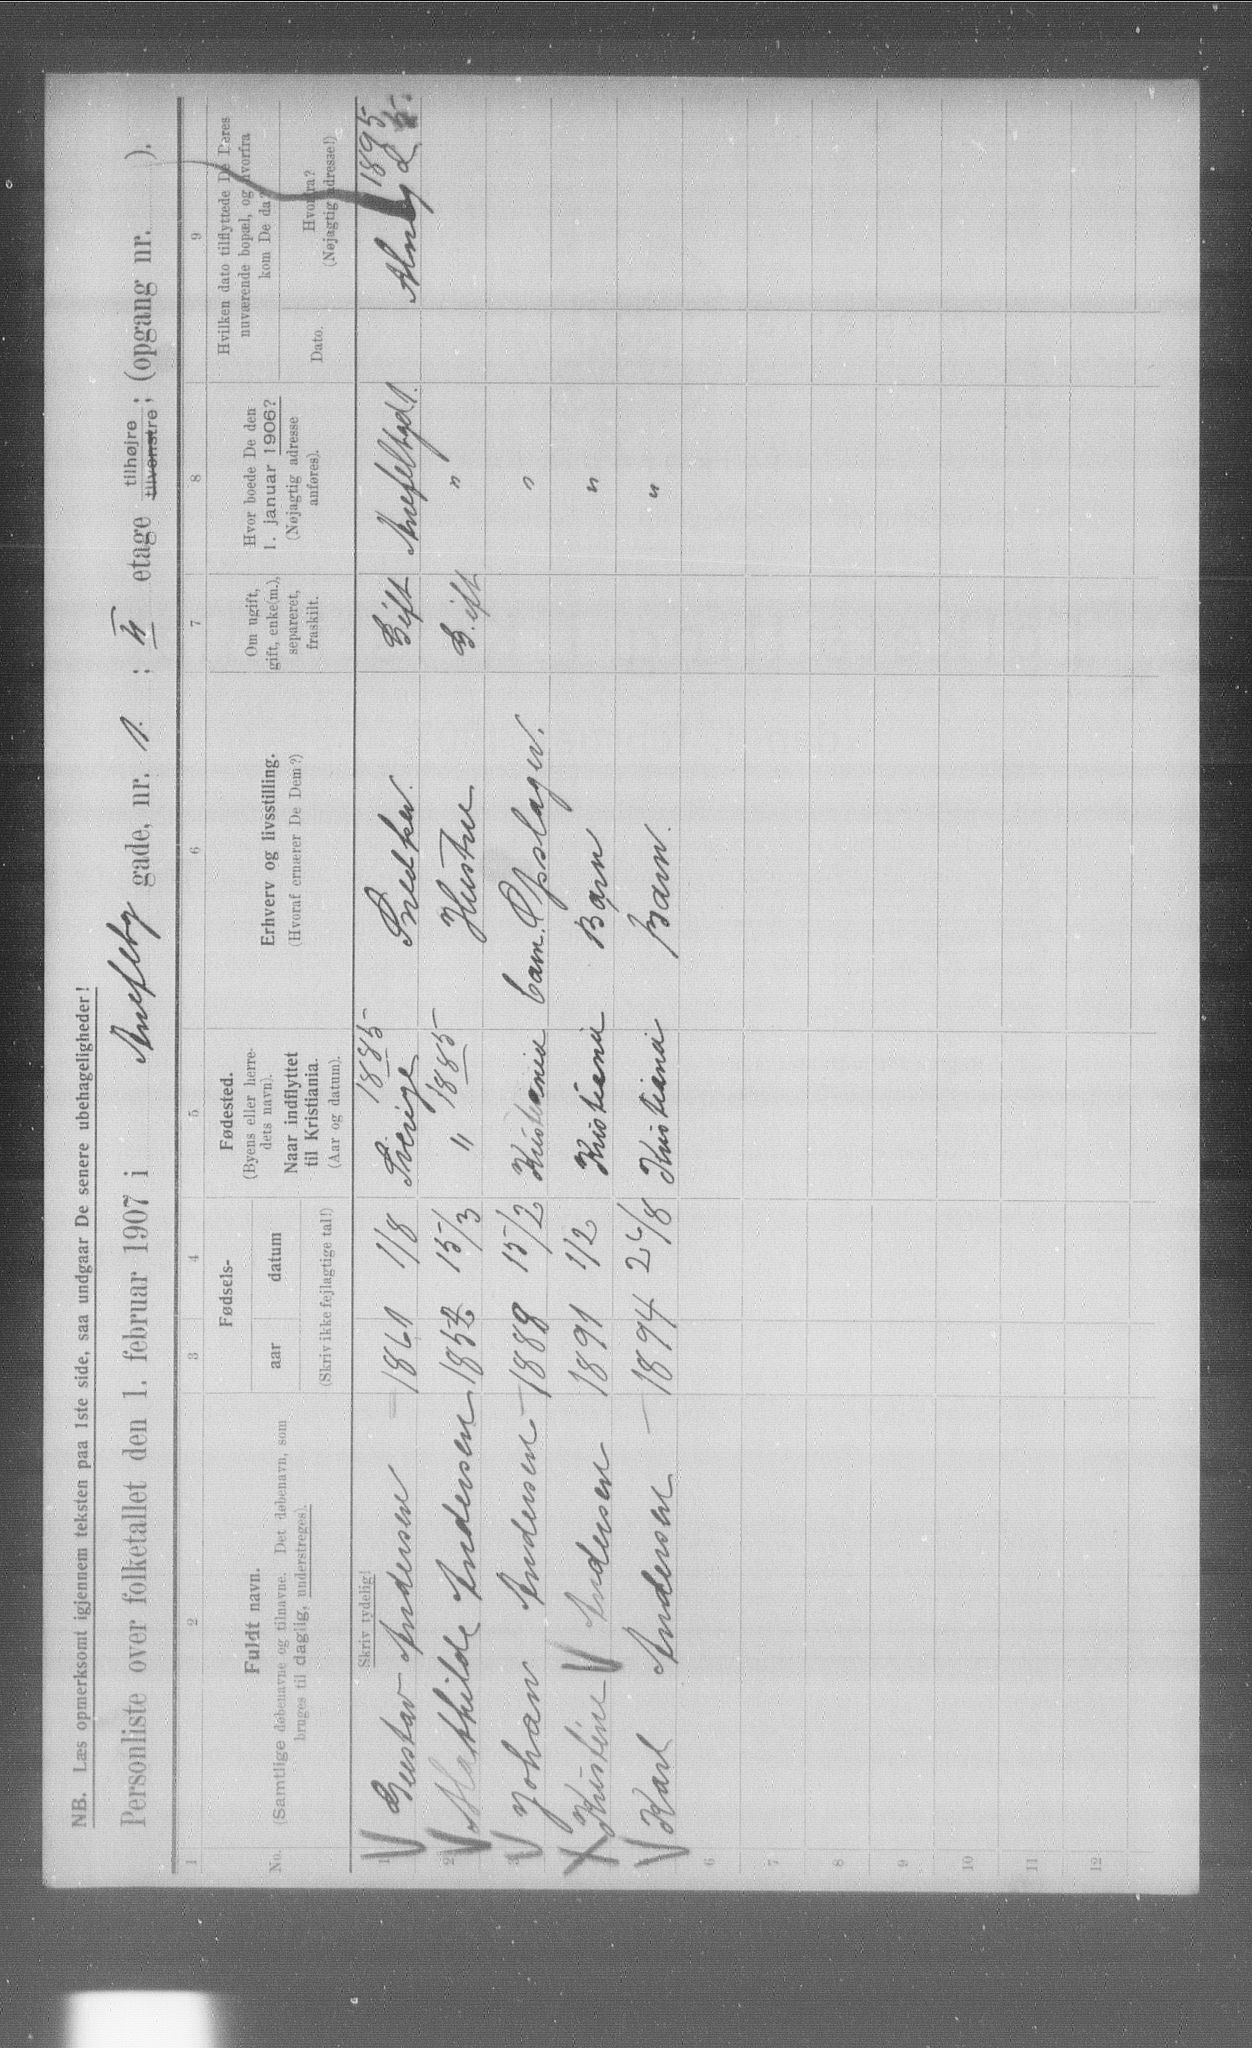 NB. Læs opmerksomt igjennem teksten paa 1ste side, saa undgaar De senere ubehageligheder!
Personliste over folketallet den 1. februar 1907 i Anefeby gade, nr. 1. ; II etage tilhøjre tilvenstre; (opgang nr. ).
1 2 3 4 5 6 7 8 9
No.
Fuldt navn.
(Samtlige døbenavne og tilnavne. Det døbenavn, som
bruges til daglig, understreges).
Fødsels-
aar datum
(Skriv ikke fejlagtige tal!)
Fødested.
(Byens eller herre-
dets navn).
Naar indflyttet
til Kristiania.
(Aar og datum).
Erhverv og livsstilling.
(Hvoraf ernærer De Dem?)
Om ugift,
gift, enke(m.),
separeret,
fraskilt.
Hvor boede De den
1. januar 1906?
(Nøjagtig adresse
anføres).
Hvilken dato tilflyttede De Deres
nuværende bopæl, og hvorfra
kom De da?
Dato.
Hvorfra?
(Nøjagtig adresse!)
Skriv tydelig!
1885 1895
1 Gustav Andersen 1861 1/8 Sverige Snedker. Gift
2 Mathilde Andersen 15/3 " 1885 Hustru G. ift "
3 Johan Andersen 1888 15/2 Kristiania Opslager. "
Kristine Andersen 1891 1/2 Kristiania Barn "
Karl Andersen 1894 Kristiania Barn. "
6
7
8
9
10
11
12